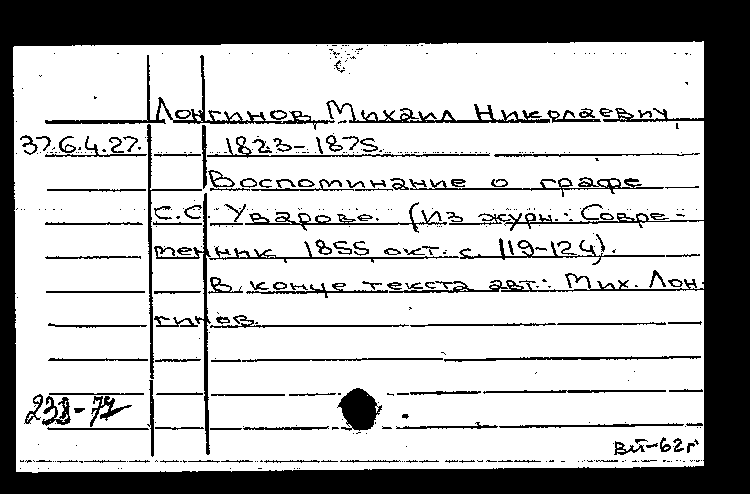 Лонгинов, Михаил Николаевич,
37.6.4.27. 1823-1875.
Воспоминание о графе
С.С. Уварове. (Из журн.: Совре-
менник, 1855, окт. с. 119-124).
В конце текста авт.: Мих. Лон-
гинов.
238-77
ВТ-62г